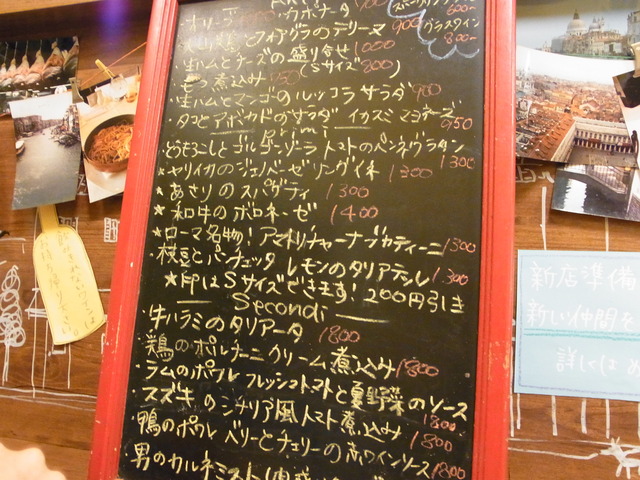 オリーブ
カポナータ
600
グラスワイン
800-
フォアグラのテリーヌ 900
生ハムとチーズの盛り合せ 1000
(Sサイズ 800)
もつ煮込み 950
生ハムとマンゴーのルッコラサラダ 900
タコとアボカドのサラダ イカスミマヨネーズ 950
Primi
・とうもろこしとゴルゴンゾーラトマトのペンネグラタン 1300
★ヤリイカのジェノベーゼリングイネ 1300
★あさりのスパゲティ 1300
★和牛のボロネーゼ 1400
★ローマ名物!アマトリチャーナブカティーニ 1300
・枝豆とパンチェッタ レモンのタリアテッレ 1300
★印はSサイズできます! 200円引き
Secondi
・牛ハラミのタリアータ 1800
・鶏のポルチーニクリーム煮込み 1800
・ラムのポワレ フレッシュトマトと夏野菜のソース 1800
・スズキのシチリア風トマト煮込み 1800
・鴨のポワレ ベリーとチェリーの赤ワインソース 1800
男のカルネミスト
飲みきれないワインは
お持ち帰り下さい。
新店準備
新しい仲間を
詳しくは